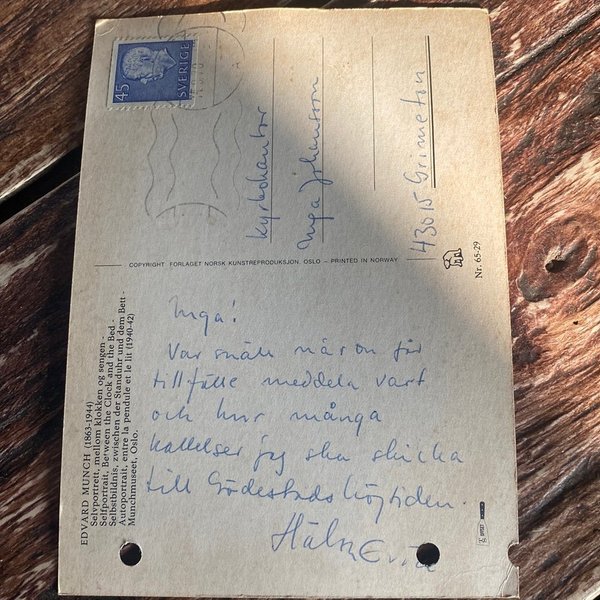 EDVARD MUNCH (1863-1944)
Selvportrett, mellom klokken og sengen -
Selfportrait, Between the Clock and the Bed -
Selbstbildnis, zwischen der Standuhr und dem Bett -
Autoportrait, entre la pendule et le lit (1940-42)
Munchmuseet, Oslo.
COPYRIGHT FORLAGET NORSK KUNSTREPRODUKSJON, OSLO – PRINTED IN NORWAY
45
SVERIGE
Kyrkokantor
Inga Johansson
43015 Grimeton
Nr. 65-29
Inga!
Var snäll när du får
tillfälle meddela vart
och hur många
kallelser jag ska skicka
till Gödestadshögtiden.
Hälsn